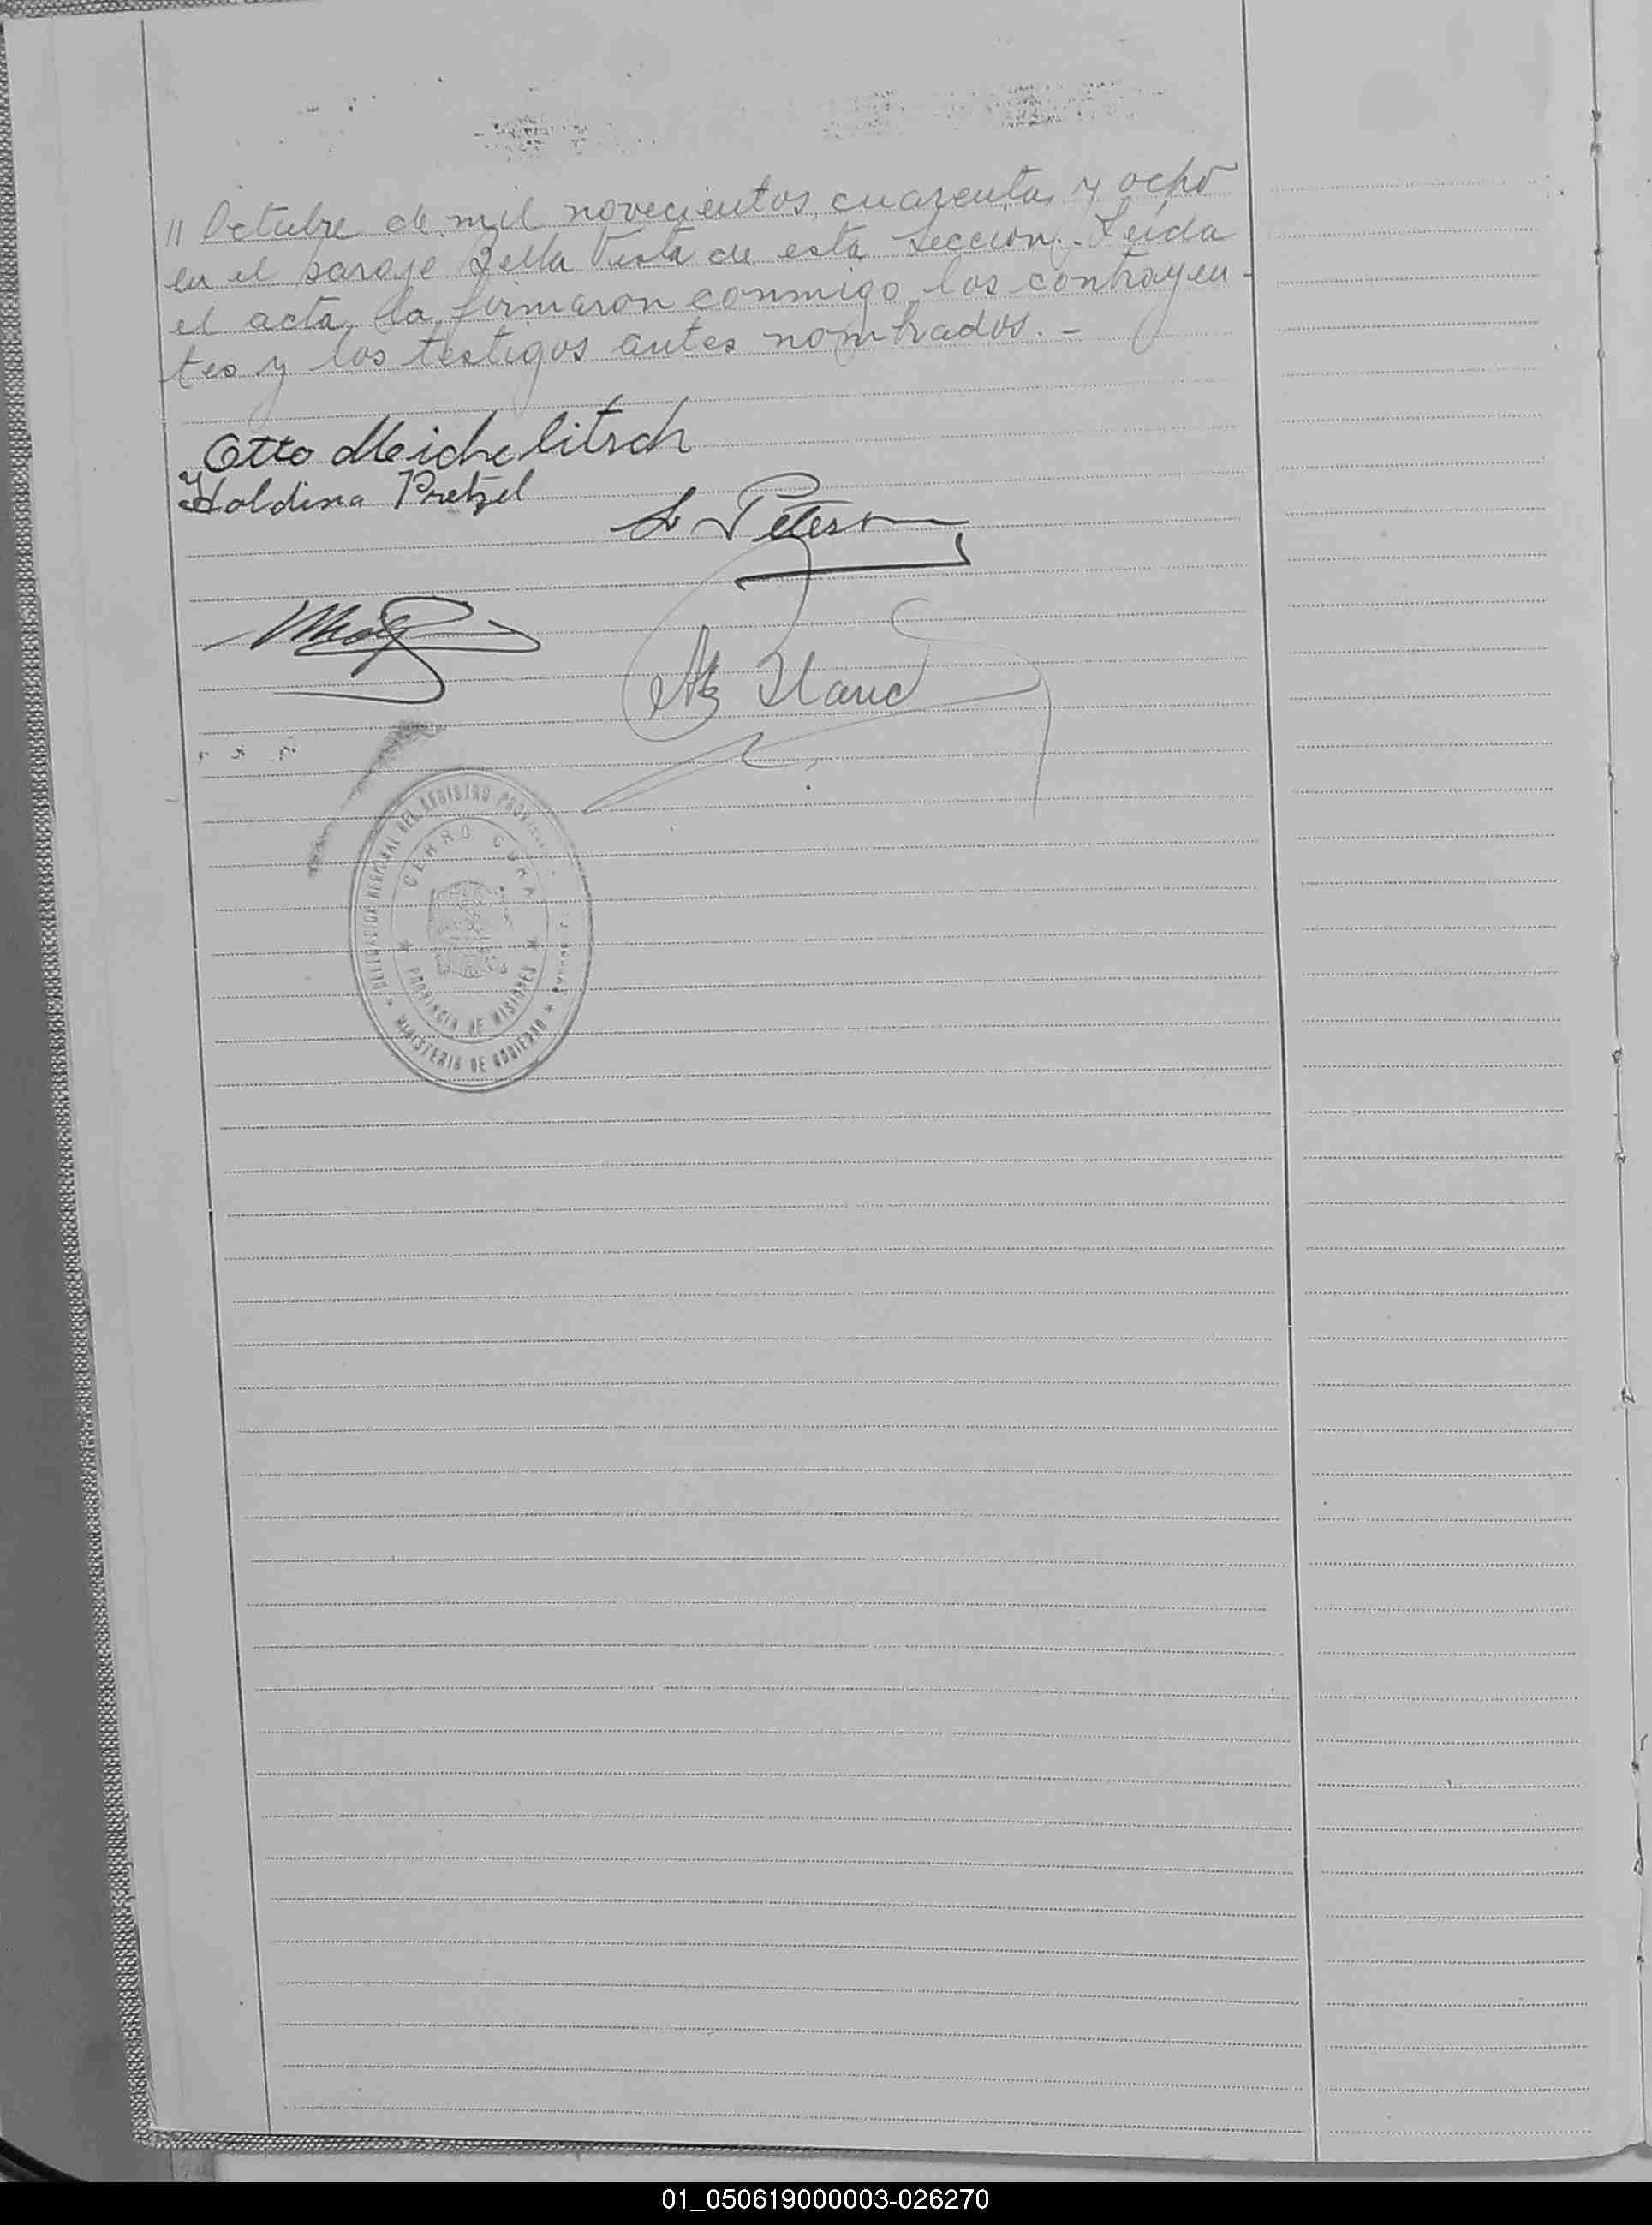 " Octubre de mil novecientos cuarenta y ocho
en el paraje Bella Vista de esta Sección.- Leída
el acta, la firmaron conmigo los contrayen-
tes y los testigos antes nombrados.-
Otto Meichelitsch
Holdina Pretzel
Peterson
DELEGACION REGIONAL DEL REGISTRO
CERRO CORA
PROVINCIA DE MISIONES
MINISTERIO DE GOBIERNO
01_050619000003-026270